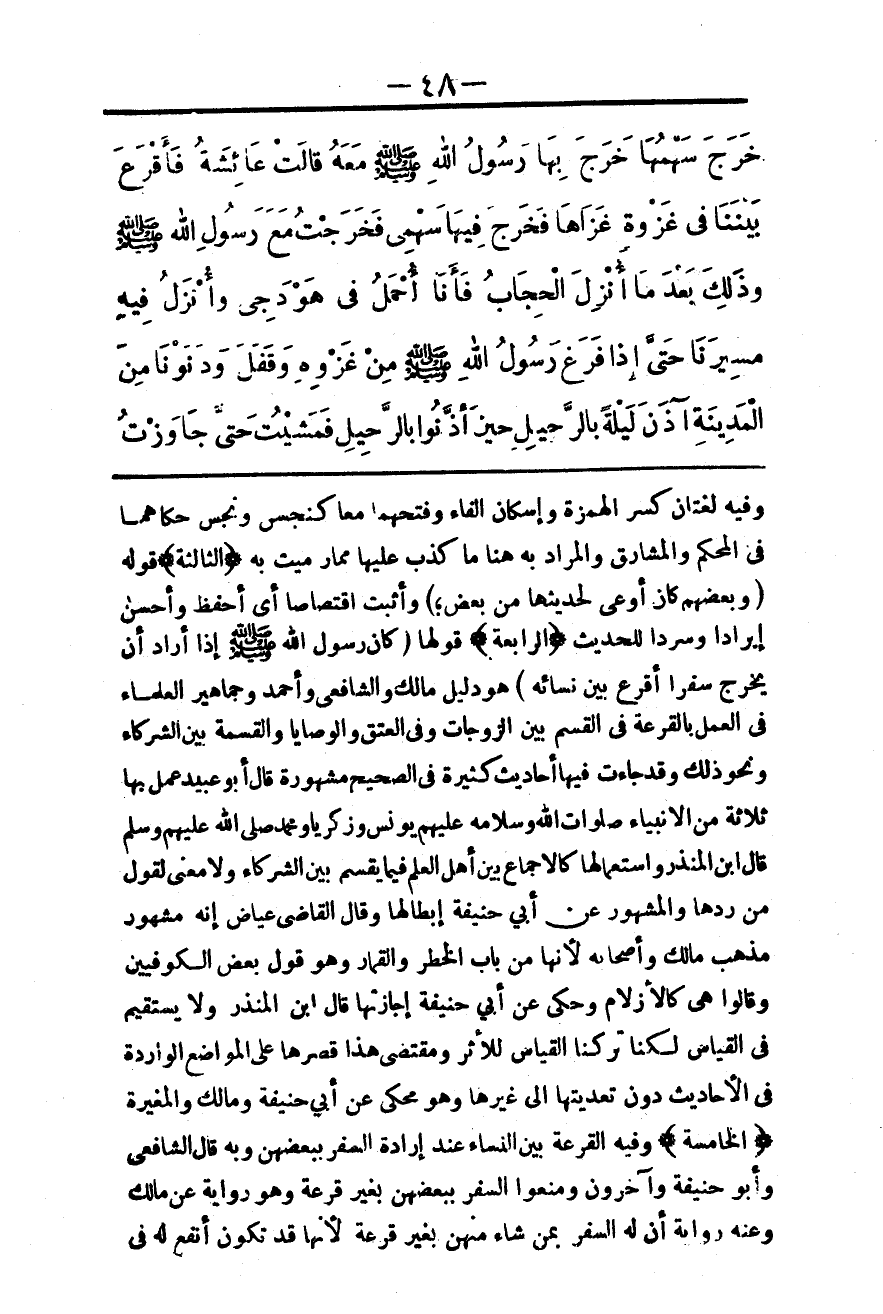 — ٤٨ —
خَرَجَ سَهْمُهَا خَرَجَ بِهَا رَسُولُ اللهِ ﷺ مَعَهُ قالَتْ عَائِشَةُ فَأَقْرَعَ
بَيْنَنَا فى غَزْوةٍ غَزَاهَا فَخَرجَ فِيهَا سَهْمِى فَخَرَجْتُ مَعَ رَسولِ الله ﷺ
وذَلِكَ بَعْدَ مَا أُنْزِلَ الْحِجَابُ فَأَنَا أُحْمَلُ فى هَوْدَجِى وأُنْزَلُ فِيهِ
مسِيرَنَا حَتىَّ إِذا فَرَغَ رَسُولُ اللهِ ﷺ مِنْ غَزْوِهِ وَقَفَلَ وَدَنَوْنَا مِنَ
الْمَدِينَةِ آذَنَ لَيْلَةً بالرَّحيلِ حينَ أذَّنُوا بالرَّحِيلِ فَمَشَيْتُ حَتىَّ جَاوَزْتُ
وفيه لغتان كسر الهمزة وإسكان الفاء وفتحهما معا كنجس ونجس حكاهمـا
فى المحكم والمشارق والمراد به هنا ما كذب عليها مما رميت به ﴿الثالثة﴾ قوله
(وبعضهم كان أوعى لحديثها من بعض) وأثبت اقتصاصا أى أحفظ وأحسن
إيرادا وسردا للحديث ﴿الرابعة﴾ قولها (كان رسول الله ﷺ إذا أراد أن
يخرج سفرا أقرع بين نسائه) هو دليل مالك والشافعى وأحمد وجماهير العلمـاء
فى العمل بالقرعة فى القسم بين الزوجات وفى العتق والوصايا والقسمة بين الشركاء
ونحو ذلك وقد جاءت فيها أحاديث كثيرة فى الصحيح مشهورة قال أبو عبيد عمل بها
ثلاثة من الانبياء صلوات الله وسلامه عليهم يونس وزكريا ومحمد صلى الله عليهم وسلم
قال ابن المنذر واستعمالها كالاجماع بين أهل العلم فيما يقسم بين الشركاء ولا معنى لقول
من ردها والمشهور عن أبي حنيفة إبطالها وقال القاضى عياض إنه مشهور
مذهب مالك وأصحابه لأنها من باب الخطر والقمار وهو قول بعض الـكوفيين
وقالوا هى كالأزلام وحكى عن أبي حنيفة إجازتها قال ابن المنذر ولا يستقيم
فى القياس لـكنا تركنا القياس للأثر ومقتضى هذا قصرها على المواضع الواردة
فى الأحاديث دون تعديتها الى غيرها وهو محكى عن أبي حنيفة ومالك والمغيرة
﴿الخامسة﴾ وفيه القرعة بين النساء عند إرادة السفر ببعضهن وبه قال الشافعى
وأبو حنيفة وآخرون ومنعوا السفر ببعضهن بغير قرعة وهو رواية عن مالك
وعنه رواية أن له السفر بمن شاء منهن بغير قرعة لأنها قد تكون أنفع له فى